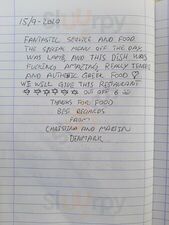 15/9-2020
FANTASTIC SERVICE AND FOOD.
THE SPECIAL MENU OFF THE DAY
WAS LAMB, AND THIS DISH WAS
FUCKING AMAZING REALLY TENDER
AND AUTHENTIC GREEK FOOD ♡
WE WILL GIVE THIS RESTAURANT
☆☆☆☆☆☆ OUT OFF 6 ☺
THANKS FOR FOOD
BEST REGARDS
FROM
CHRISTINA AND MARTIN
DENMARK